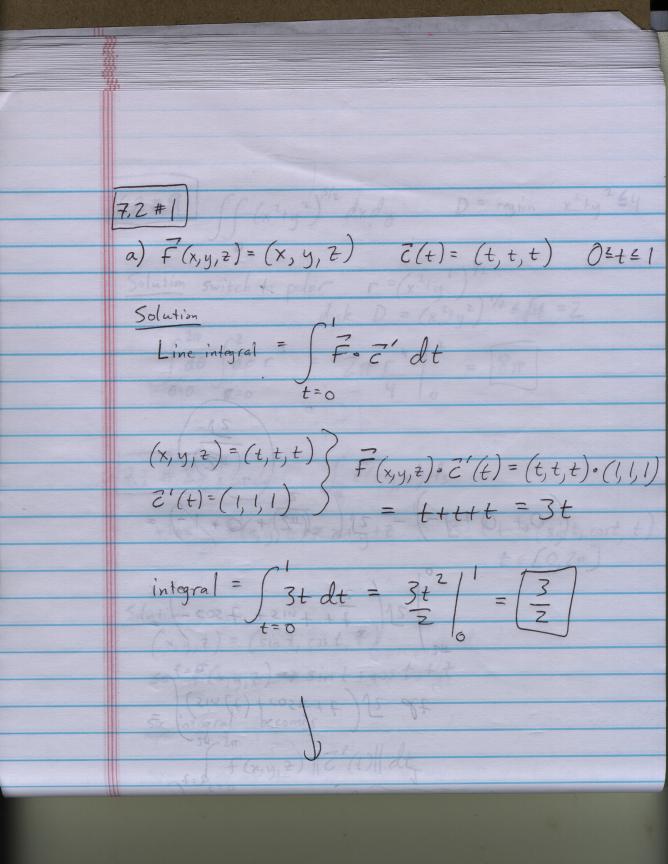 7.2 #1
a) F⃗(x,y,z) = (x, y, z) c⃗(t) = (t, t, t) 0≤t≤1
Solution
Line integral = ∫_{t=0}^{1} F⃗ • c⃗' dt
(x,y,z) = (t,t,t) } F⃗(x,y,z) • c⃗'(t) = (t,t,t) • (1,1,1)
c⃗'(t) = (1,1,1) = t+t+t = 3t
integral = ∫_{t=0}^{1} 3t dt = 3t²/2 |_0^1 = 3/2